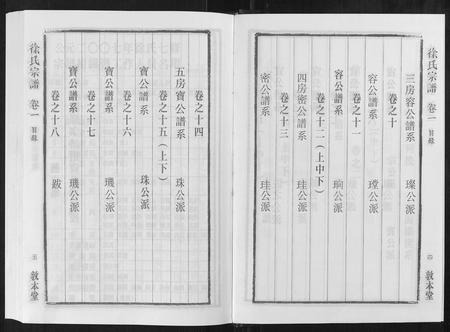 徐氏宗譜 卷一 目錄
三房容公譜系 璨公派
卷之十
容公譜系 瑝公派
卷之十一
容公譜系 珦公派
卷之十二（上中下）
四房密公譜系 珪公派
卷之十三
密公譜系 珪公派
四 敦本堂
卷之十四
五房寶公譜系 珠公派
卷之十五（上下）
寶公譜系 珠公派
卷之十六
寶公譜系 璣公派
卷之十七
寶公譜系 璣公派
卷之十八
跋
徐氏宗譜 卷一 目錄
五 敦本堂